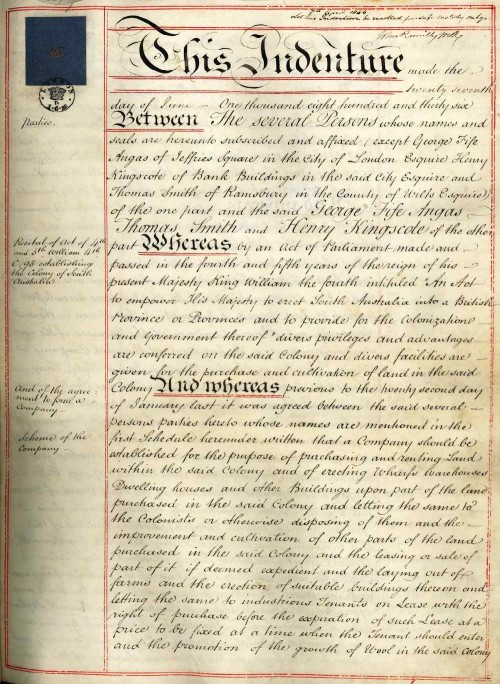 This Indenture made the
Twenty seventh
day of June One thousand eight hundred and thirty six
Between The several Persons whose names and
seals are hereunto subscribed and affixed (except George Fife
Angas of Jeffries Square in the City of London Esquire Henry
Kingscote of Bank Buildings in the said City Esquire and
Thomas Smith of Ramsbury in the County of Wilts Esquire)
of the one part and the said George Fife Angas
Thomas Smith and Henry Kingscote of the other
part Whereas by an Act of Parliament made and
passed in the fourth and fifth years of the reign of his
present Majesty King William the fourth intituled "An Act
to empower His Majesty to erect South Australia into a British
Province or Provinces and to provide for the Colonization
and Government thereof" divers privileges and advantages
are conferred on the said Colony and divers facilities are
given for the purchase and cultivation of land in the said
Colony And whereas previous to the twenty second day
of January last it was agreed between the said several
persons parties hereto whose names are mentioned in the
first Schedule hereunder written that a Company should be
established for the purpose of purchasing and renting Land
within the said Colony and of erecting Wharfs Warehouses
Dwelling houses and other Buildings upon part of the land
purchased in the said Colony and letting the same to
the Colonists or otherwise disposing of them and the
improvement and cultivation of other parts of the land
purchased in the said Colony and the leasing or sale of
part of it if deemed expedient and the laying out of
farms and the erection of suitable buildings thereon and
letting the same to industrious Tenants on Lease with the
right of purchase before the expiration of such Lease at a
price to be fixed at a time when the Tenant should enter
and the promotion of the growth of Wool in the said Colony
Parties
Recital of Act of 4th
and 5th William 4th
C. 95 establishing
the Colony of South
Australia
And of the agree-
ment to form a
Company
Scheme of the
Company